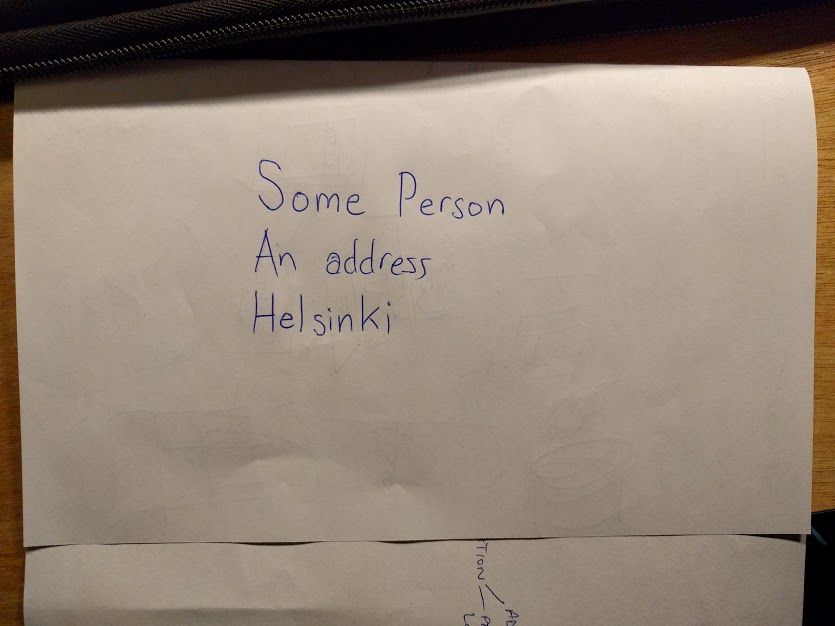 Some Person
An address
Helsinki
TION